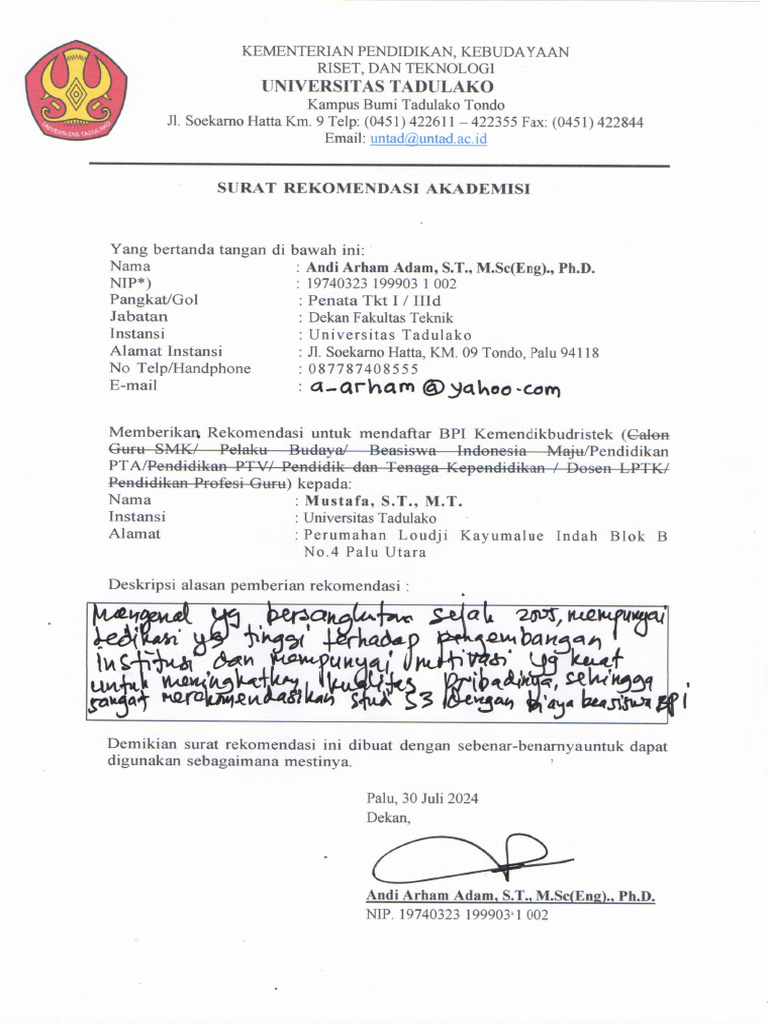 UNIVERSITAS TADULAKO
KEMENTERIAN PENDIDIKAN, KEBUDAYAAN
RISET, DAN TEKNOLOGI
UNIVERSITAS TADULAKO
Kampus Bumi Tadulako Tondo
Jl. Soekarno Hatta Km. 9 Telp: (0451) 422611 – 422355 Fax: (0451) 422844
Email: untad@untad.ac.id
SURAT REKOMENDASI AKADEMISI
Yang bertanda tangan di bawah ini:
Nama : Andi Arham Adam, S.T., M.Sc(Eng)., Ph.D.
NIP*) : 19740323 199903 1 002
Pangkat/Gol : Penata Tkt I / IIId
Jabatan : Dekan Fakultas Teknik
Instansi : Universitas Tadulako
Alamat Instansi : Jl. Soekarno Hatta, KM. 09 Tondo, Palu 94118
No Telp/Handphone : 087787408555
E-mail : a_arham@yahoo.com
Memberikan Rekomendasi untuk mendaftar BPI Kemendikbudristek (Calon
Guru SMK/ Pelaku Budaya/ Beasiswa Indonesia Maju/Pendidikan
PTA/Pendidikan PTV/ Pendidik dan Tenaga Kependidikan / Dosen LPTK/
Pendidikan Profesi Guru) kepada:
Nama : Mustafa, S.T., M.T.
Instansi : Universitas Tadulako
Alamat : Perumahan Loudji Kayumalue Indah Blok B
No.4 Palu Utara
Deskripsi alasan pemberian rekomendasi :
Mengenal yg bersangkutan sejak 2005, mempunyai
dedikasi yg tinggi terhadap pengembangan
institusi dan mempunyai motivasi yg kuat
untuk meningkatkan kualitas pribadinya, sehingga
sangat merekomendasikan studi S3 dengan biaya beasiswa BPI
Demikian surat rekomendasi ini dibuat dengan sebenar-benarnyauntuk dapat
digunakan sebagaimana mestinya.
Palu, 30 Juli 2024
Dekan,
Andi Arham Adam, S.T., M.Sc(Eng)., Ph.D.
NIP. 19740323 199903 1 002